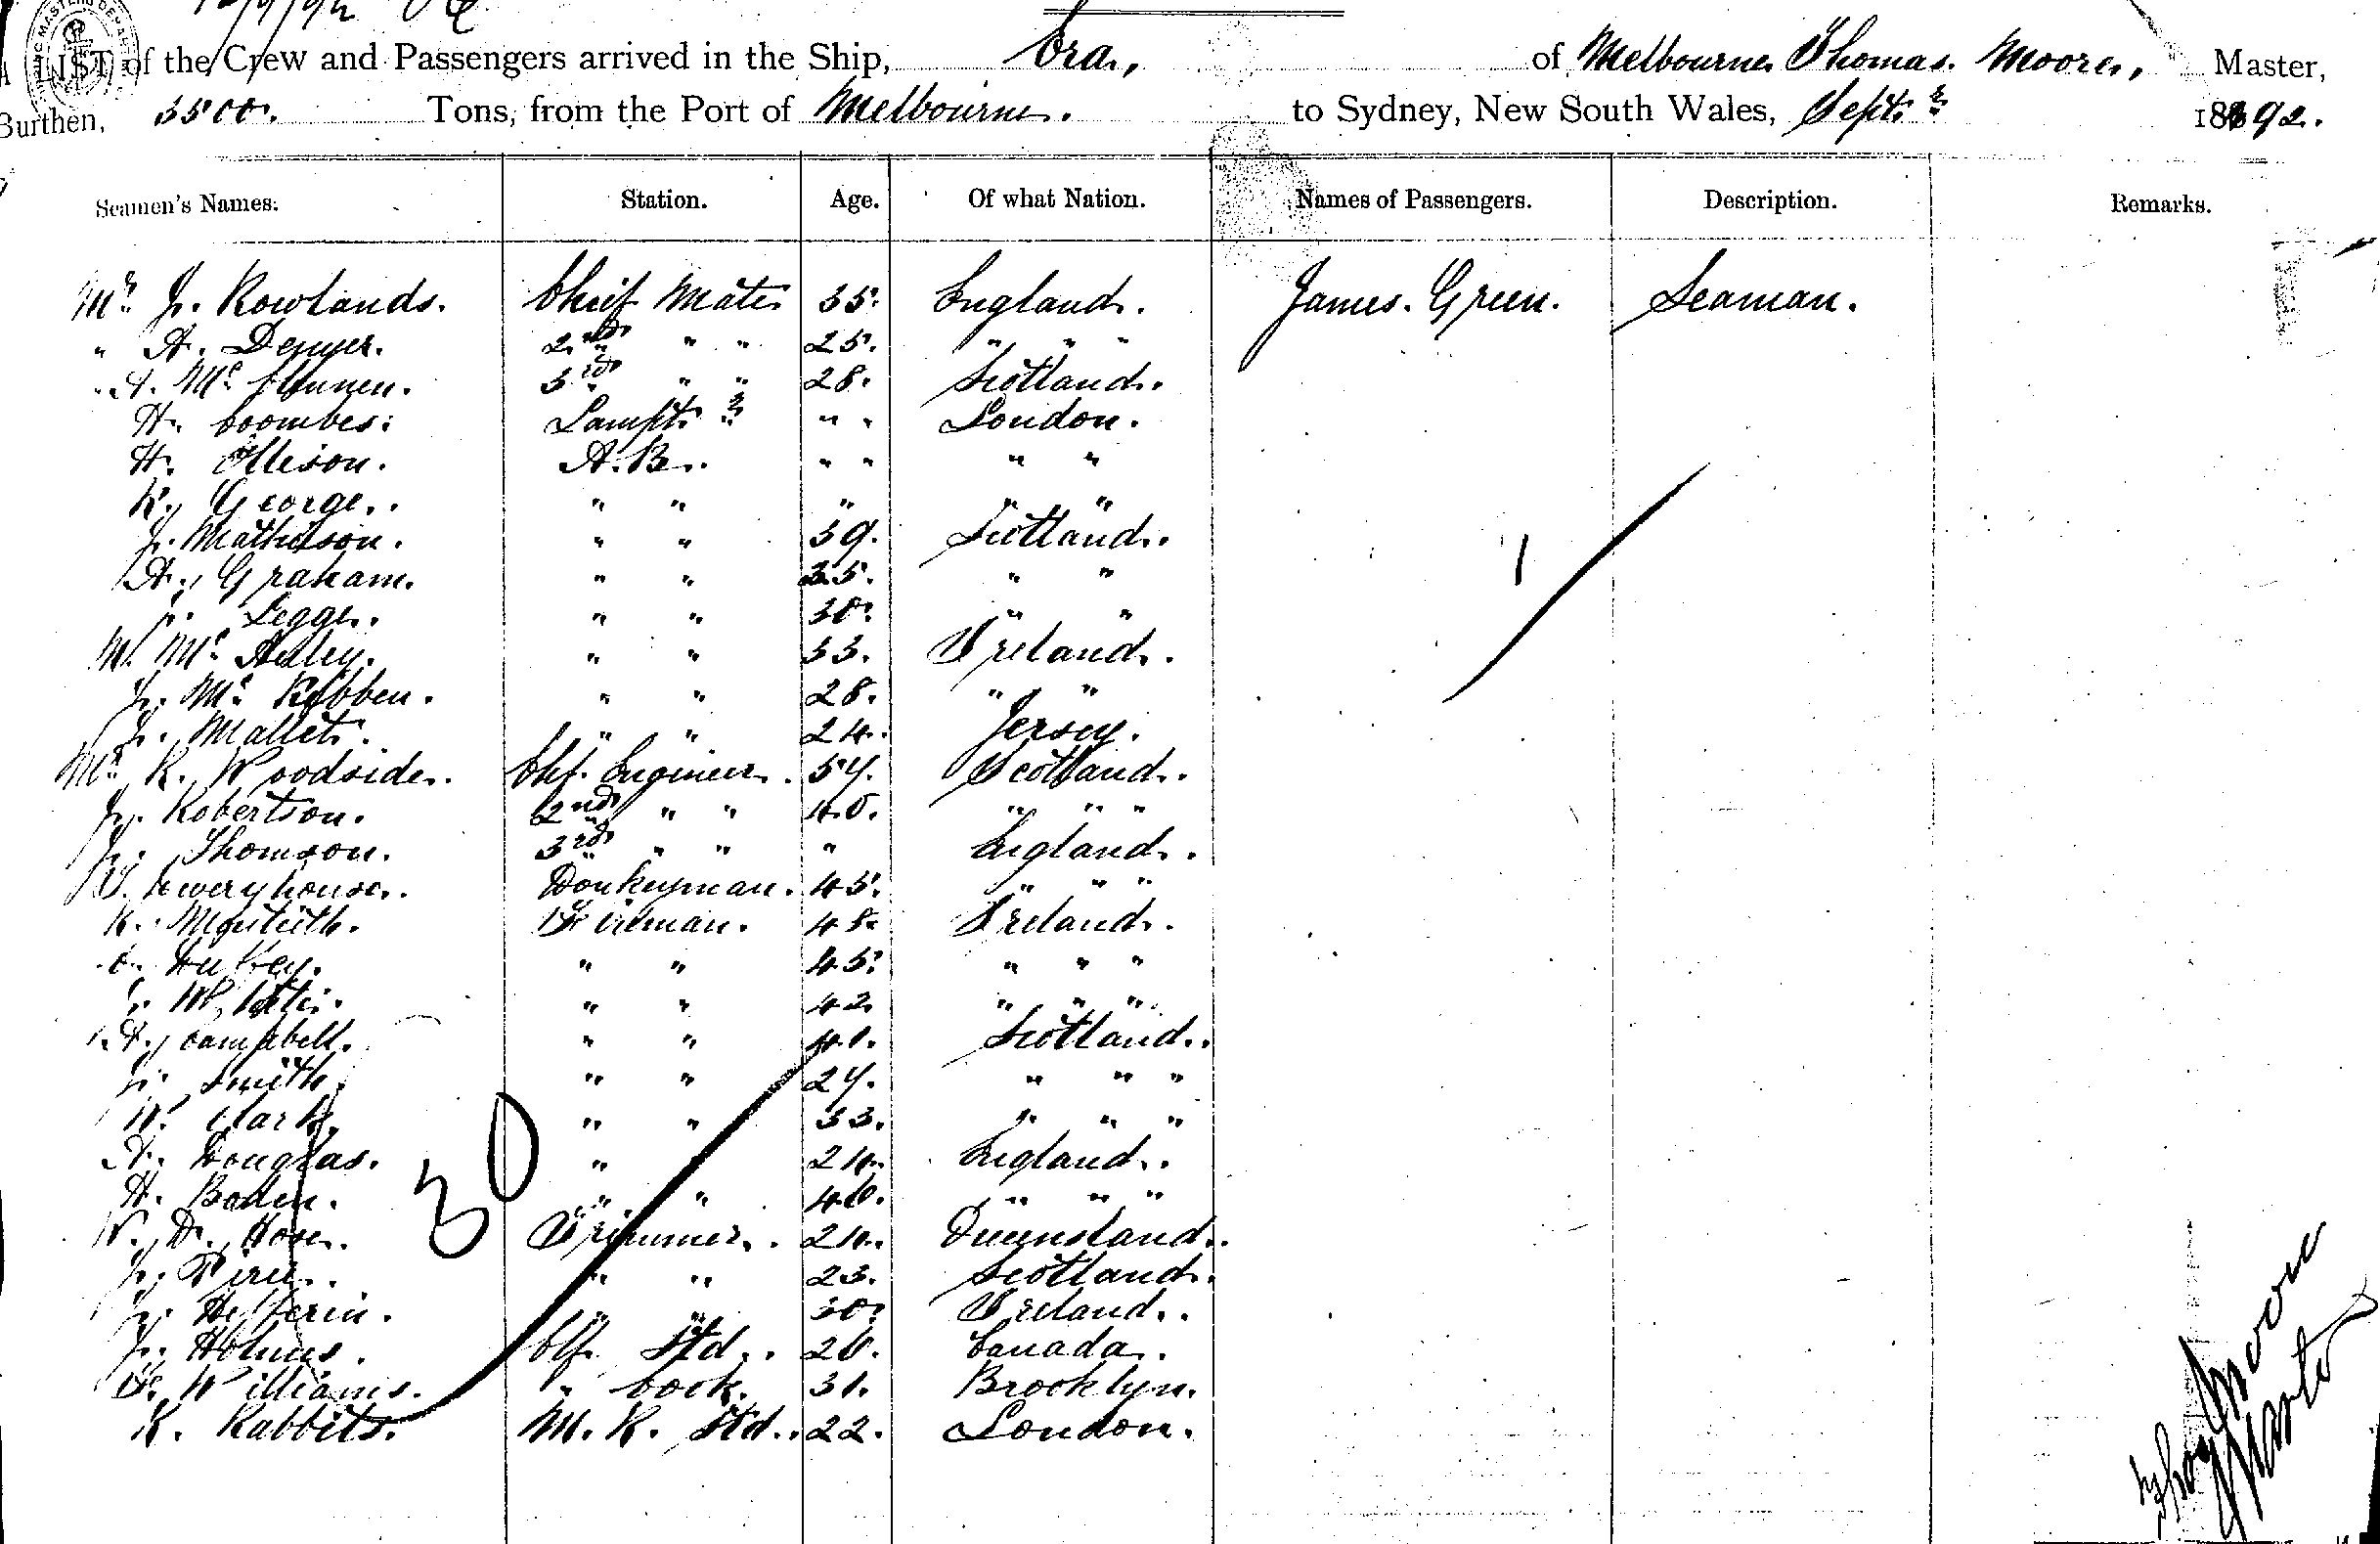 LIST of the Crew and Passengers arrived in the Ship, Era, of Melbourne Thomas. Moore, Master,
Burthen, 3500. Tons, from the Port of Melbourne. to Sydney, New South Wales, Sept. 1892.
Seamen's Names. Station. Age. Of what Nation. Names of Passengers. Description. Remarks.
Mr. J. Rowlands. Chief Mate 35. England. James. Green. Seaman.
" A. Denyer. 2nd " " 25. " " "
" A. Mc 3rd " " 28. Scotland.
H. Coombes. Lampt. " " London.
H. Ellison. A.B. " " " "
R. George. " " " " "
J. Mathieson. " " 39. Scotland.
A. Graham. " " 35. " "
J. Legge. " " 30. " "
M. Mc Auley. " " 33. Ireland.
J. Mc Kibben. " " 28. " "
J. Mallet. " " 24. Jersey.
Mr. R. Woodside. Chf. Engineer. 57. Scotland.
J. Robertson. 2nd " " 40. " " "
J. Thomson. 3rd " " " England.
Donkeyman. 45. " " "
R. Monteith. Fireman. 48. Ireland.
" " 45. " " "
" " 42 " " "
A. Campbell. " " 40. Scotland.
J. Smith. " " 27. " " "
W. Clark. " " 33. " " "
A. Douglas. " 24. England.
H. Boden. " " 40. " " "
Trimmer. 24. Queensland.
J. Pirie. " " 23. Scotland.
J. Hefferin. " " 30. Ireland.
J. Holmes. Chf. Std. 26. Canada.
F. Williams. " Cook. 31. Brooklyn.
R. Rabbits. M. R. Std. 22. London.
30
1
Thos Moore
Master